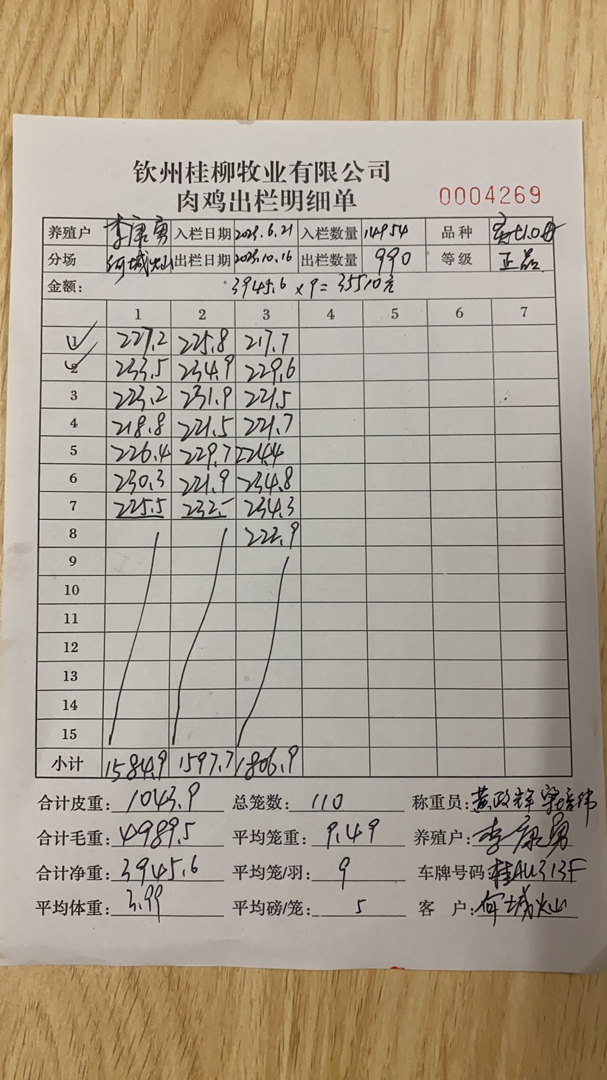 钦州桂柳牧业有限公司
肉鸡出栏明细单
0004269
养殖户 李康勇 入栏日期 2023.6.21 入栏数量 14954 品种
分场 出栏日期 2023.10.16 出栏数量 990 等级 正品
金额: 3945.6 x 9 = 35510元
1 2 3 4 5 6 7
1 227.2 225.8 217.7
2 233.5 234.9 229.6
3 223.2 231.9 221.5
4 218.8 221.5 221.7
5 226.4 229.7 224.4
6 230.3 221.9 234.8
7 225.5 232.- 234.3
8 222.9
9
10
11
12
13
14
15
小计 1584.9 1597.7 1806.9
合计皮重: 1043.9 总笼数: 110 称重员: 黄政辉
合计毛重: 4989.5 平均笼重: 9.49 养殖户: 李康勇
合计净重: 3945.6 平均笼/羽: 9 车牌号码 桂AU313F
平均体重: 3.99 平均磅/笼: 5 客 户: